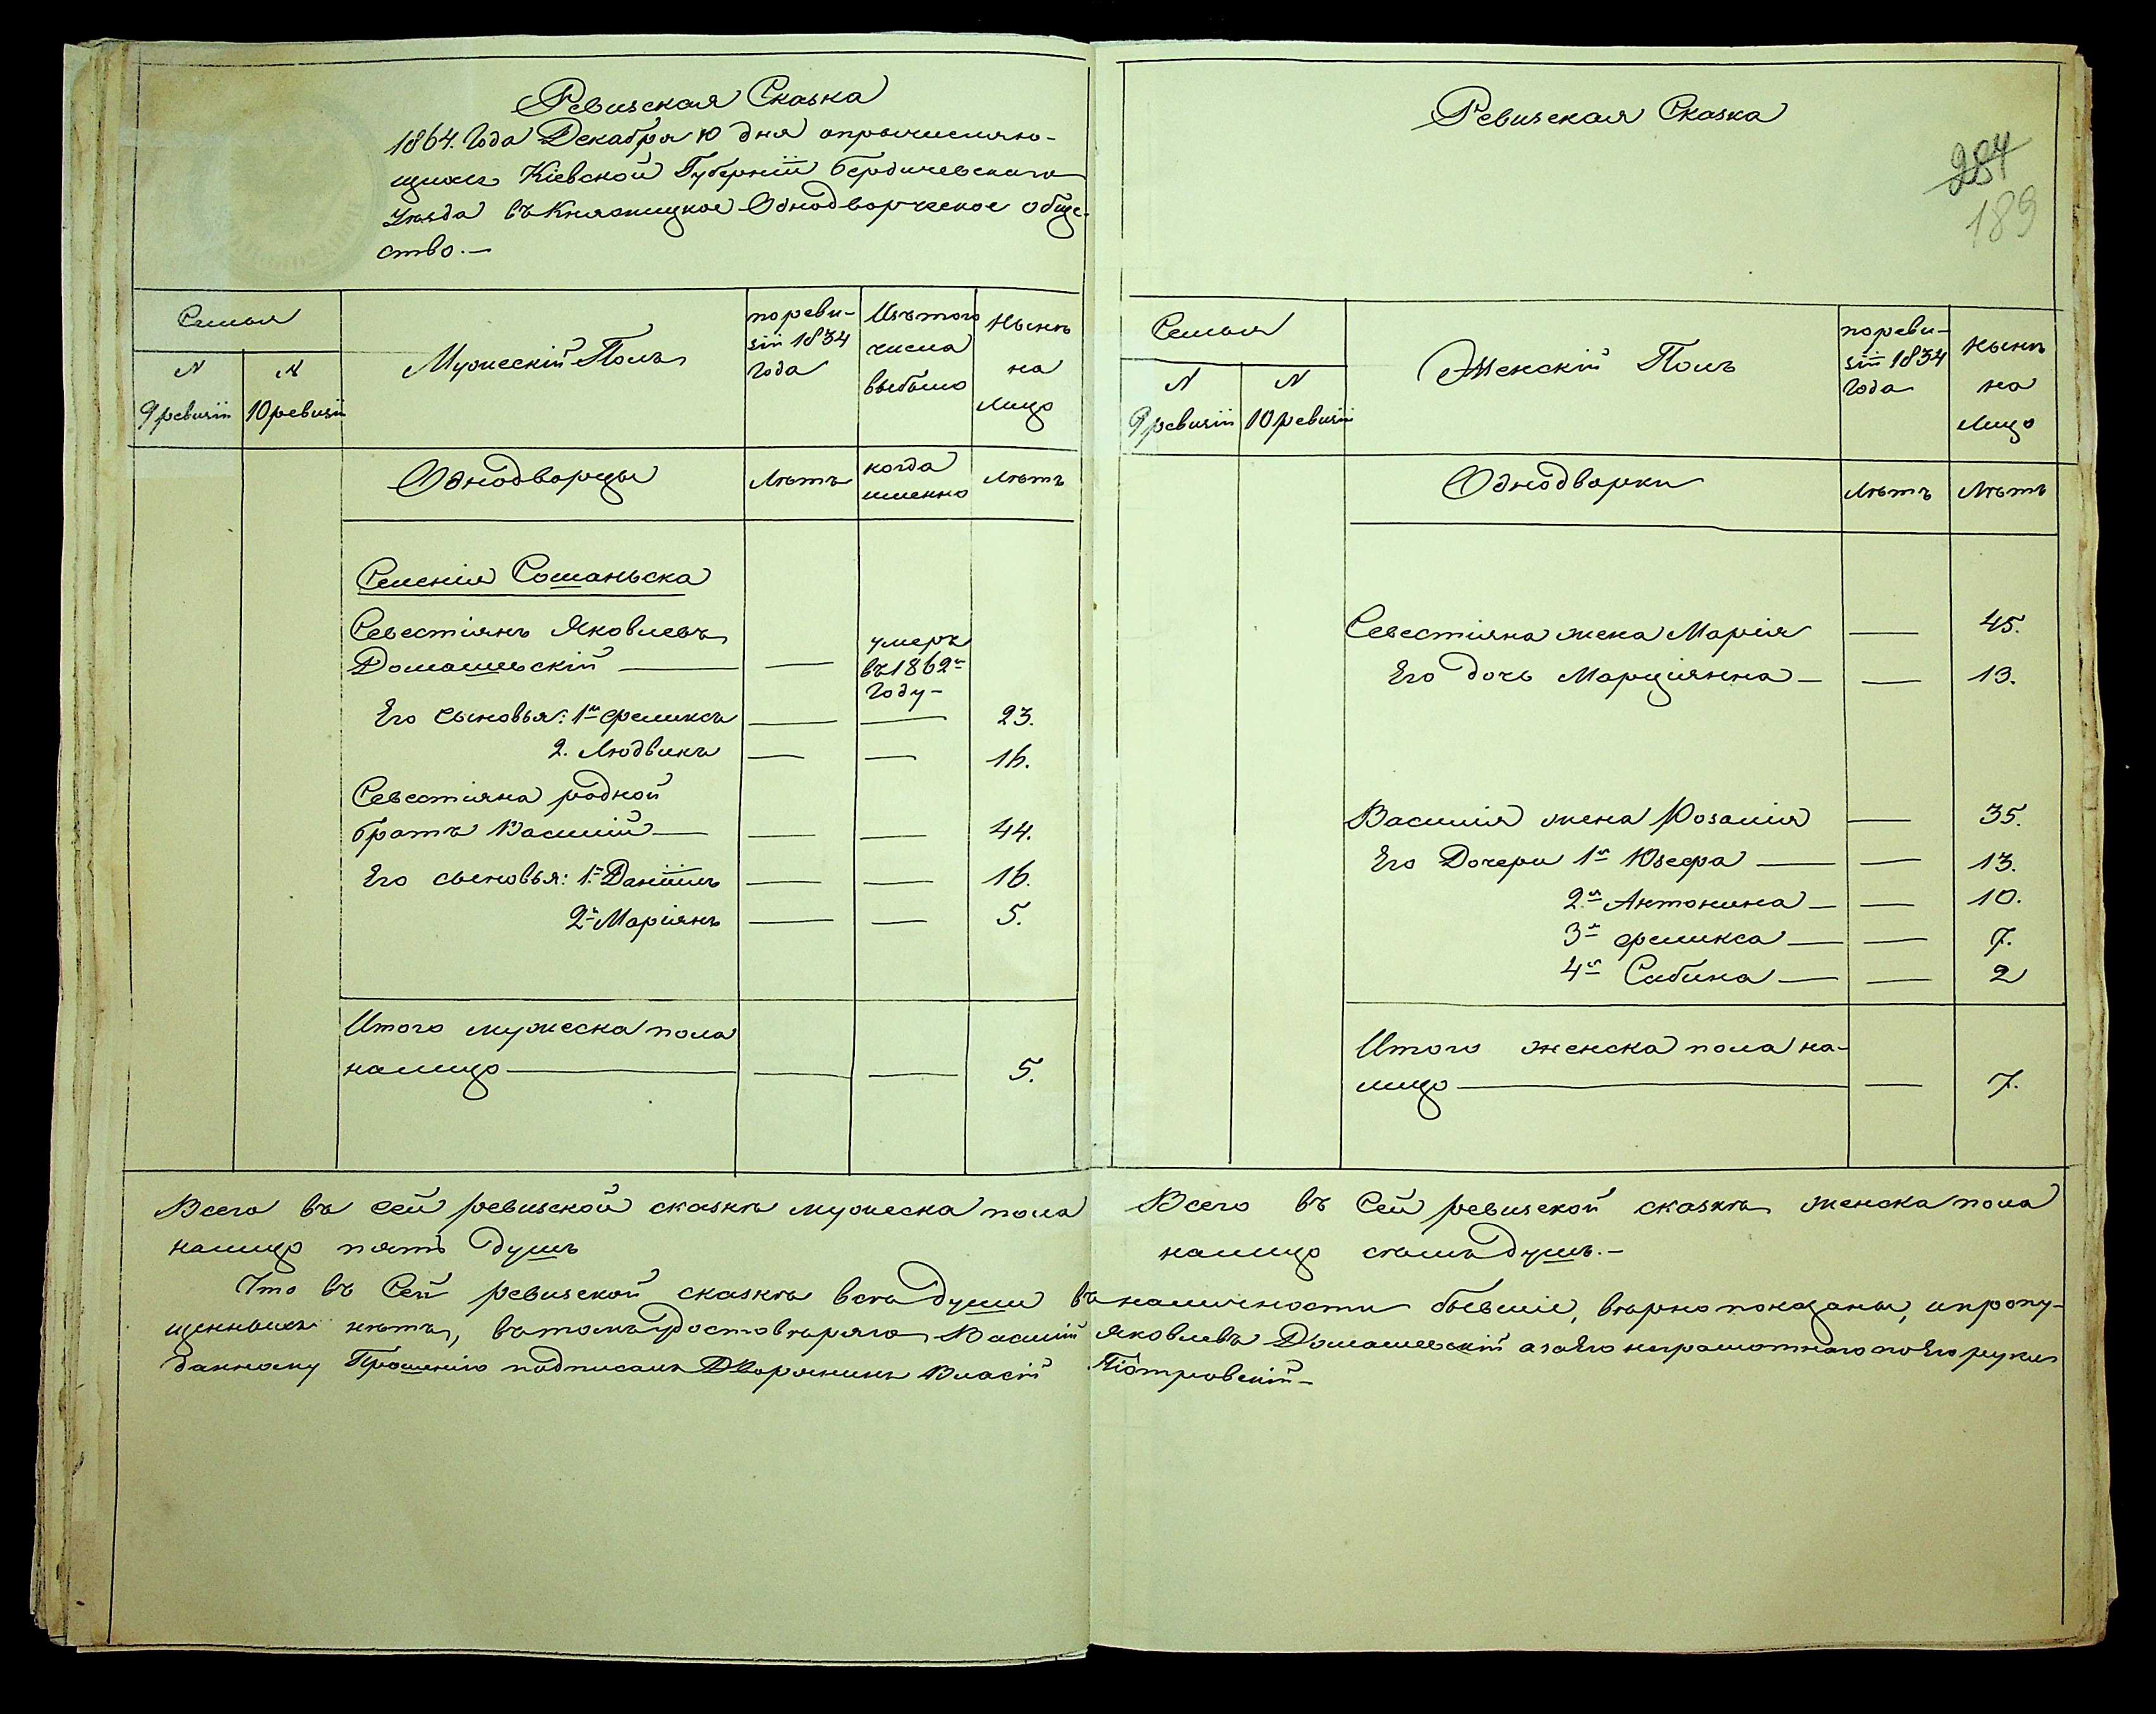 Ревизская Сказка
1864. Года Декабря 10 дня опричисляю-
щихся Кіевской Губерніи Бердичевскаго
Уѣзда въ Княжицкое Однодворческое обще-
ство.—
Семья
N
9 ревизіи
N
10 ревизіи
Мужескій Полъ
по реви-
зіи 1834
Года
Изъ того
числа
выбыло
Нынѣ
на
лицо
Однодворцы
Лѣтъ
когда
именно
Лѣтъ
Селенія Сошаньска
Севестіянъ Яковлевъ
Домашевскій — — умеръ
въ 1862мъ
Году —
Его сыновья: 1й Феликсъ — — 23.
2. Людвикъ — — 16.
Севестіяна родной
братъ Василій — — — 44.
Его сыновья: 1й Даніилъ — — 16.
2й Маріянъ — — 5.
Итого мужеска пола
налицо — — — 5.
Всего въ сей ревизской сказкѣ мужеска пола
налицо пять душъ
Ревизская Сказка
254
189
Семья
N
9 ревизіи
N
10 ревизіи
Женскій Полъ
по реви-
зіи 1834
Года
Нынѣ
на
лицо
Однодворки
Лѣтъ
Лѣтъ
Севестіяна жена Марія — 45.
Его дочь Марціянна — — 13.
Василія жена Розалія — 35.
Его Дочери 1я Юзефа — — 13.
2я Антонина — — 10.
3я Феликса — — 7.
4я Сабина — — 2
Итого женска пола на-
лицо — — 7.
Всего въ Сей ревизской сказкѣ женска пола
налицо семь душъ.—
Что въ Сей ревизской сказкѣ всѣ души въ наличности бывшіе, вѣрно показаны, и пропу-
щенныхъ нѣтъ, въ томъ удостовѣряю Василій Яковлевъ Домашевскій а за Его неграмотнаго по Его руки
данному Прошенію подписалъ Дворянинъ Власій Піотровскій —